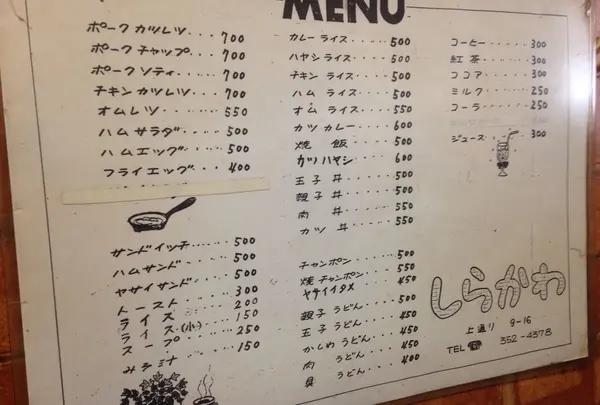 MENU
ポーク カツレツ...700
ポーク チャップ...700
ポーク ソティ...700
チキン カツレツ...700
オムレツ.....550
ハム サラダ....500
ハム エッグ....500
フライ エッグ....400
サンドイッチ......500
ハムサンド....500
ヤサイサンド....500
トースト....300
ライス....200
ライス(小)...150
スープ....250
みそ汁....150
カレー ライス...500
ハヤシ ライス...500
チキン ライス...500
ハム ライス....500
オム ライス....550
カツ カレー....600
焼 飯....500
カツ ハヤシ....600
玉子 丼....500
親子 丼....500
肉 丼....550
カツ 丼....550
チャンポン....500
焼 チャンポン...550
ヤサイイタメ....450
親子 うどん....500
玉子 うどん....450
かしわ うどん...450
肉 うどん....450
うどん....400
コーヒー.....300
紅 茶.....300
ココア.....300
ミルク.....250
コーラ.....250
ジュース.....300
しらかわ
上通り 9-16
TEL 352-4378